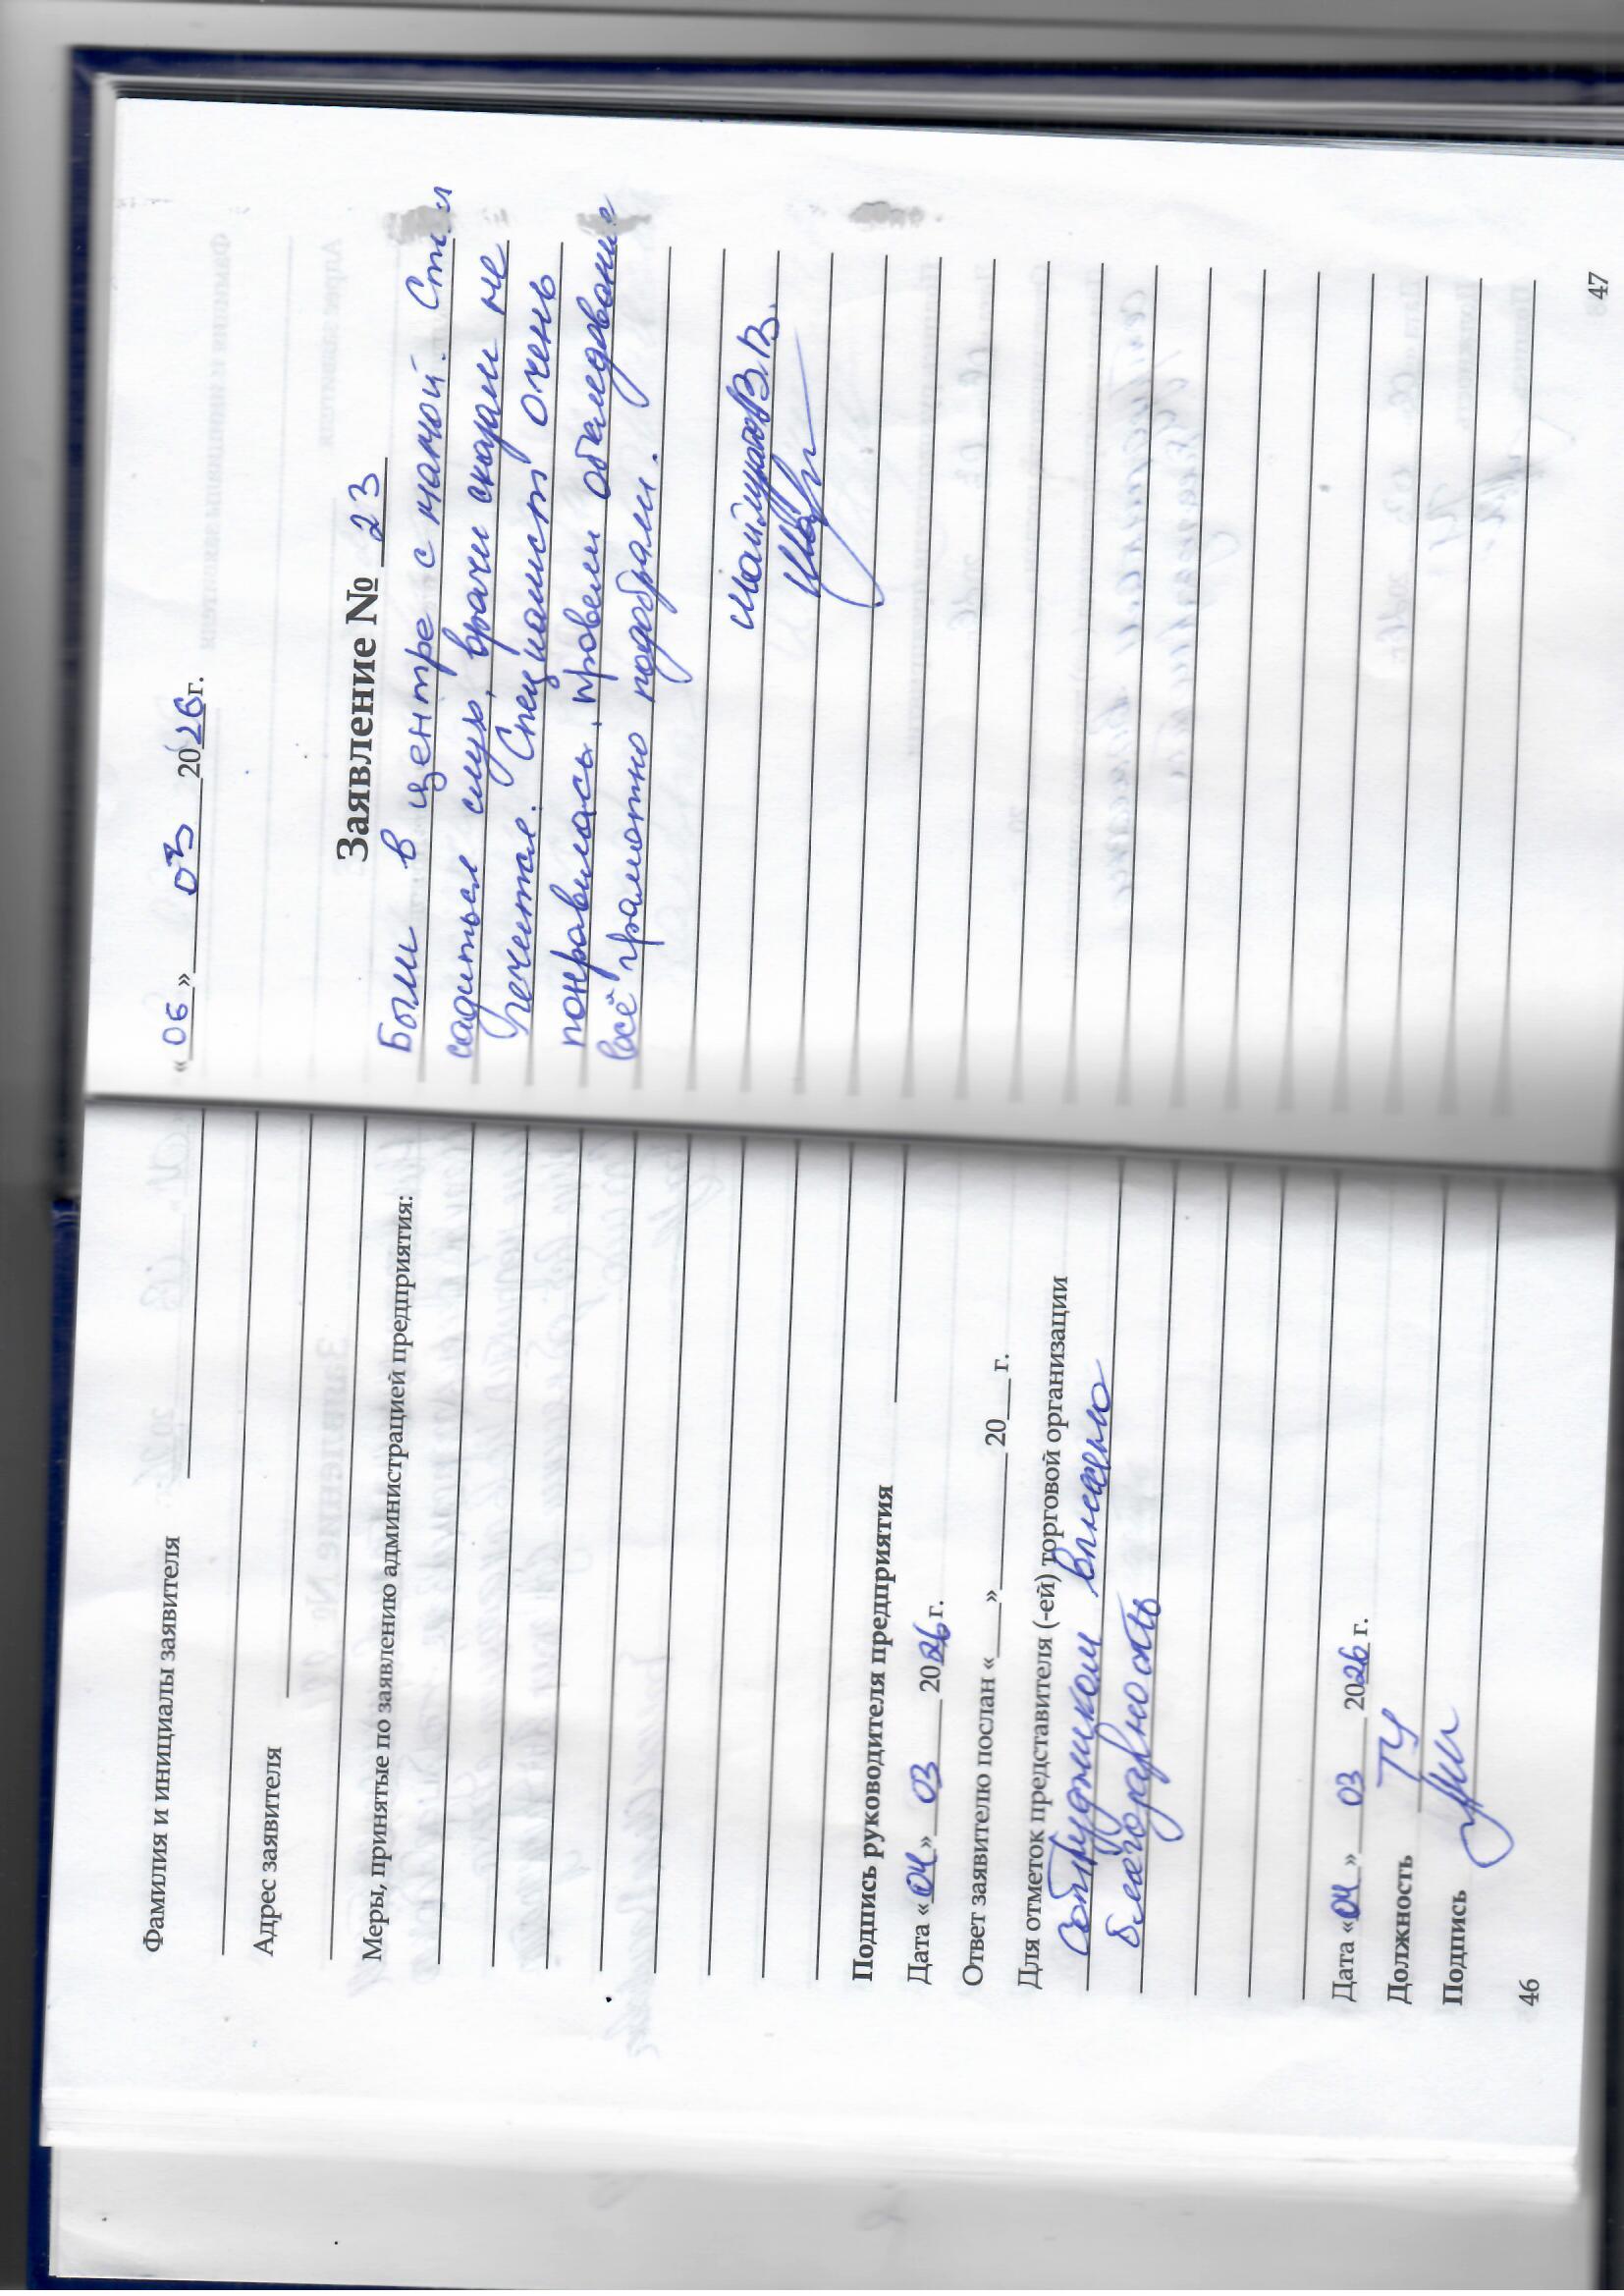 Фамилия и инициалы заявителя
Адрес заявителя
Меры, принятые по заявлению администрацией предприятия:
Подпись руководителя предприятия
Дата «04» 03 2026 г.
Ответ заявителю послан « » 20 г.
Для отметок представителя (-ей) торговой организации
Сотрудникам вынесено
благодарность
Дата «04» 03 2026 г.
Должность ТУ
Подпись
46
«06» 03 2026г.
Заявление № 23
Были в центре с мамой. Стал
садиться слух, врачи сказали не
лечится. Специалист очень
понравилась, провели обследование
всё грамотно подобрали.
В.В.
47